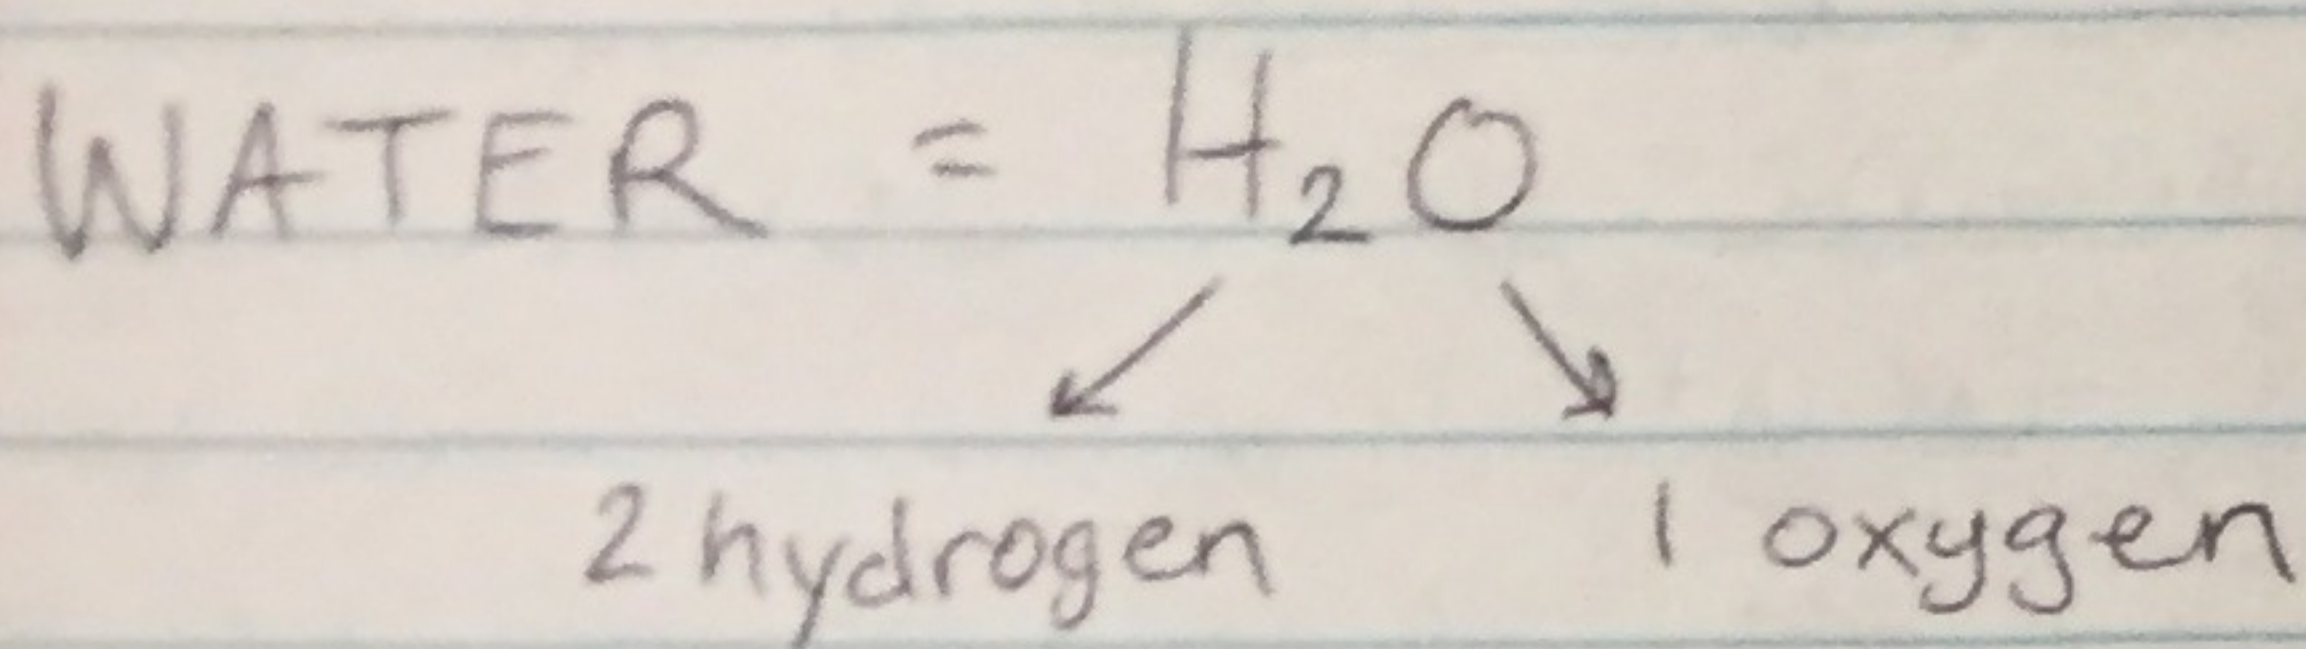 WATER = H₂O
2 hydrogen 1 oxygen